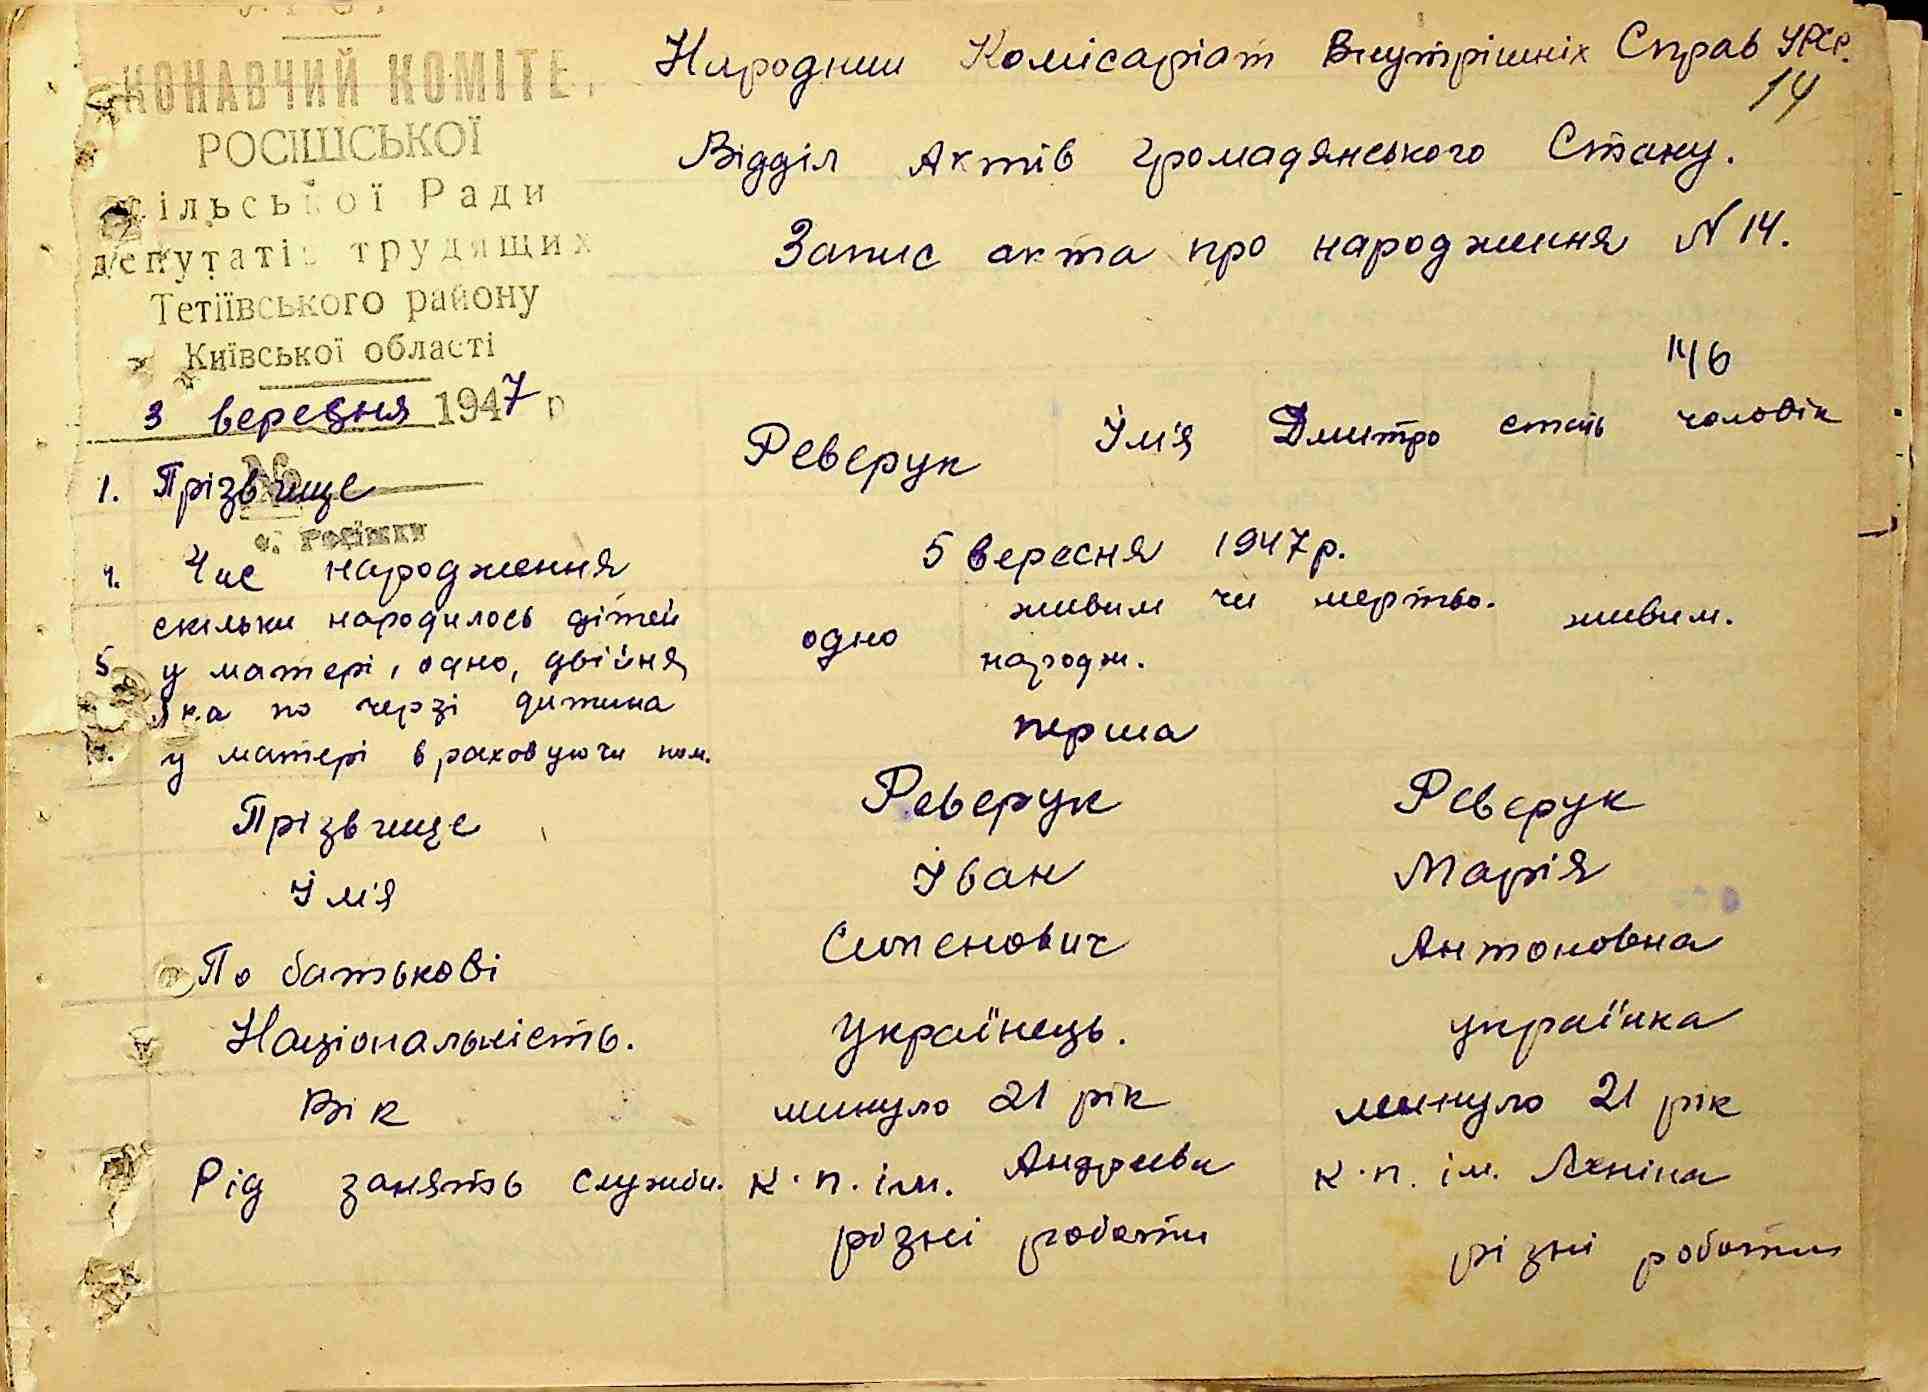 КОНАВЧИЙ КОМІТЕ
РОСІШСЬКОЇ
сільської Ради
депутатів трудящих
Тетіївського району
Київської області
3 вересня 1947 р
№
с. Росішки
Народний Комісаріат Внутрішніх Справ УРСР.
14
Відділ Актів Громадянського Стану.
Запис акта про народження N 14.
146
1. Прізвище Реверук Їм'я Дмитро стать чоловік
4. Час народження 5 вересня 1947 р.
скільки народилось дітей живим чи мертво. живим.
5. у матері, одно, двійня одно народж.
Яка по черзі дитина
у матері враховуючи пом. перша
Прізвище Реверук Реверук
Їм'я Іван Марія
По батькові Антоновна
Національність. Українець. українка
Вік минуло 21 рік минуло 21 рік
Рід занять служби. к.п. ім. Андреева к.п. ім. Леніна
різні роботи різні роботи